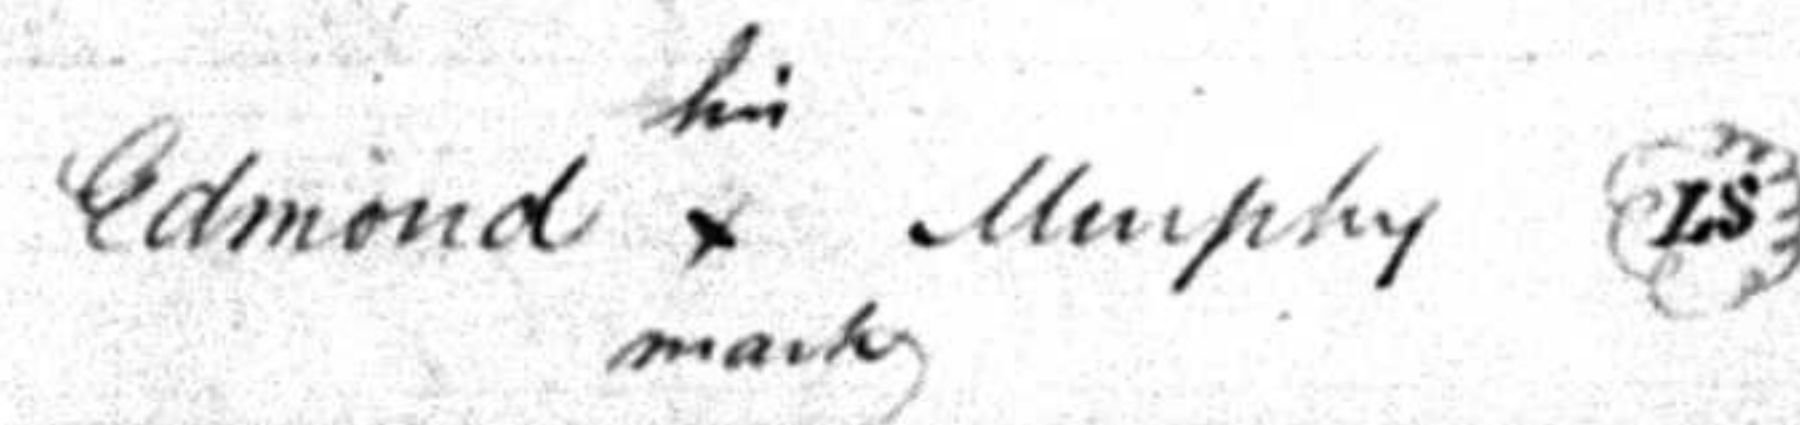 his
Edmond x Murphy LS
mark